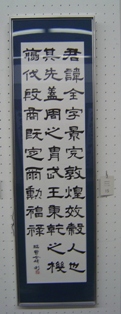 君諱全字景完敦煌效穀人也
其先蓋周之胄武王秉乾之機
翦伐殷商既定爾勳福祿